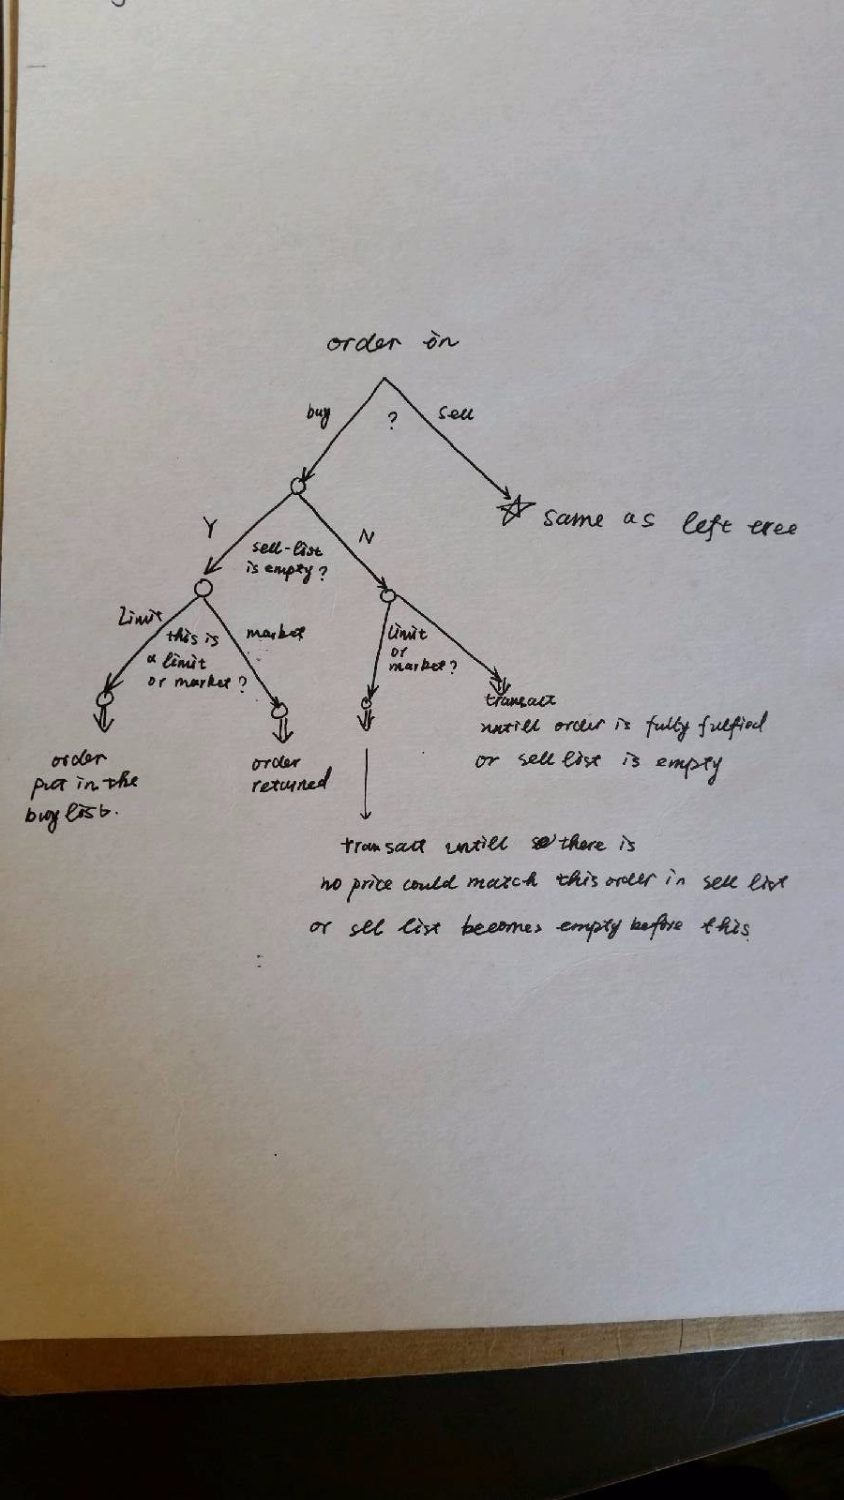 order in
buy
?
sell
same as left tree
Y
sell-list
is empty?
N
Limit
this is
a limit
or market?
market
limit
or
market?
order
put in the
buy list.
order
returned
transact
untill order is fully fulfied
or sell list is empty
transact untill there is
no price could match this order in sell list
or sell list becomes empty before this